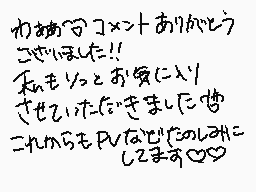 わぁぁ♡コメントありがとう
ございました!!
私もりっとお気に入り
させていただきました
これからもPVなどたのしみに
してます♡♡